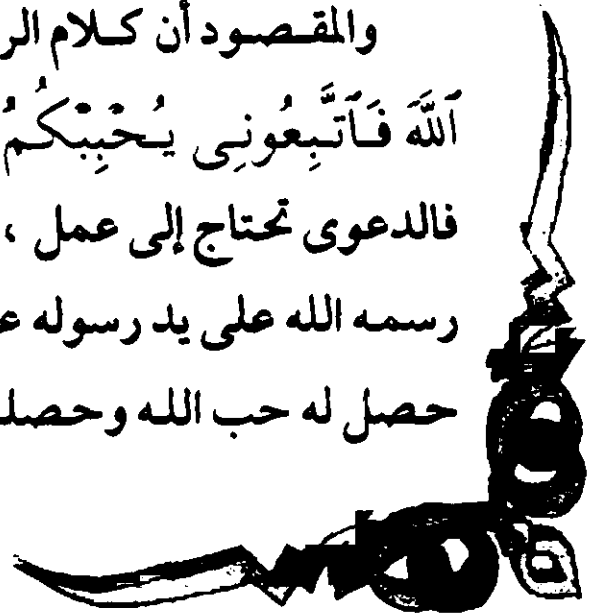 والمقصود أن كلام الر
ٱللَّهَ فَٱتَّبِعُونِى يُحْبِبْكُمُ
فالدعوى تحتاج إلى عمل ،
رسمه الله على يد رسوله ع
حصل له حب الله وحصلـ